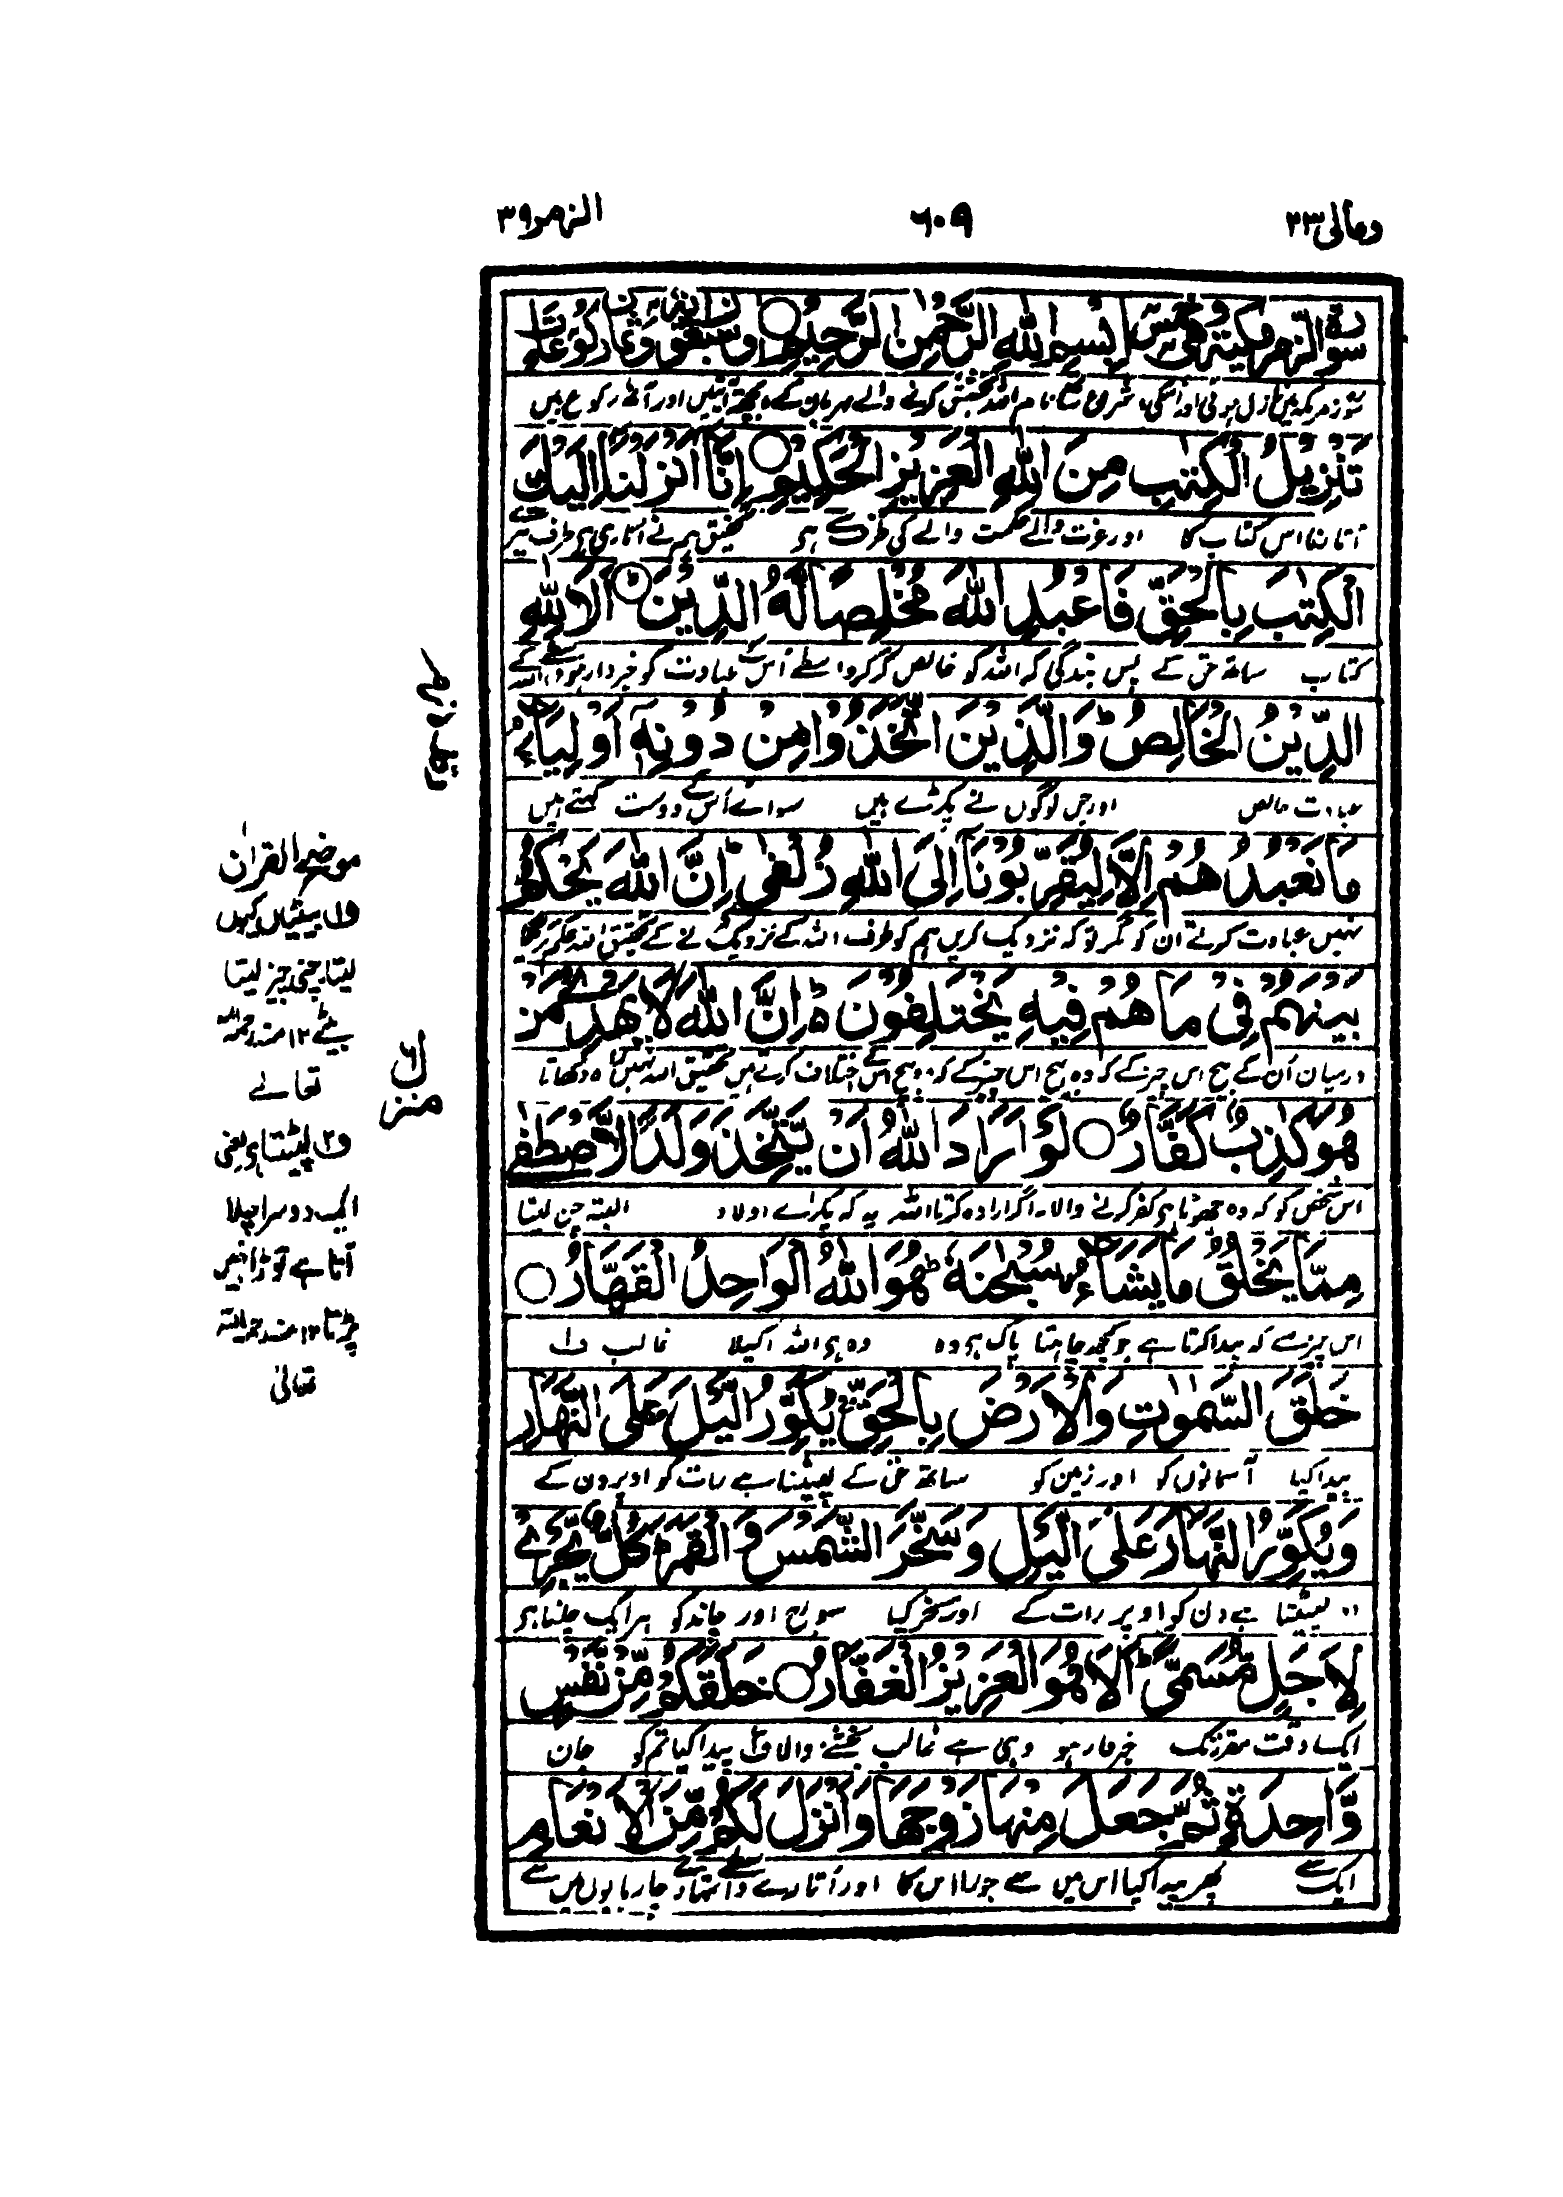 ومالی ۲۳
۶۰۹
الزمر ۳۹
سورة الزمر مکیة وهی خمس وسبعون اٰیة وثمان رکوعات
بِسْمِ اللّٰهِ الرَّحْمٰنِ الرَّحِیْمِ
تَنْزِیْلُ الْکِتٰبِ مِنَ اللّٰهِ الْعَزِیْزِ الْحَکِیْمِ ○ اِنَّاۤ اَنْزَلْنَاۤ اِلَیْكَ
اتارنا اس کتاب کا اور عزت والے حکمت والے کی طرف سے ہی تحقیق ہم نے اتاری ہی طرف تیرے
الْکِتٰبَ بِالْحَقِّ فَاعْبُدِ اللّٰهَ مُخْلِصًا لَّهُ الدِّیْنَ ○ اَلَا لِلّٰهِ
کتاب ساتھ حق کے پس بندگی کر اللہ کو خالص کر کر واسطے اس کے عبادت کو خبردار ہو واسطے اللہ کے
الدِّیْنُ الْخَالِصُ ؕ وَالَّذِیْنَ اتَّخَذُوْا مِنْ دُوْنِهٖۤ اَوْلِیَآءَ
عبادت خالص اور جن لوگوں نے پکڑے ہیں سوائے اس کے دوست کہتے ہیں
مَا نَعْبُدُهُمْ اِلَّا لِیُقَرِّبُوْنَاۤ اِلَی اللّٰهِ زُلْفٰی ؕ اِنَّ اللّٰهَ یَحْکُمُ
نہیں عبادت کرتے ان کو مگر تو کہ نزدیک کریں ہم کو طرف اللہ کے نزدیک کرنے کے تحقیق اللہ حکم کرے گا
بَیْنَهُمْ فِیْ مَا هُمْ فِیْهِ یَخْتَلِفُوْنَ ؕ۬ اِنَّ اللّٰهَ لَا یَهْدِیْ مَنْ
درمیان ان کے بیچ اس چیز کے کہ وہ بیچ اس کے اختلاف کرتے ہیں تحقیق اللہ نہیں راہ دکھاتا
هُوَ کٰذِبٌ کَفَّارٌ ○ لَوْ اَرَادَ اللّٰهُ اَنْ یَّتَّخِذَ وَلَدًا لَّاصْطَفٰی
اس شخص کو کہ وہ جھوٹا ہی کفر کرنے والا۔ اگر ارادہ کرتا اللہ یہ کہ پکڑے اولاد البتہ چن لیتا
مِمَّا یَخْلُقُ مَا یَشَآءُ ۙ سُبْحٰنَهٗ ؕ هُوَ اللّٰهُ الْوَاحِدُ الْقَهَّارُ ○
اس چیز سے کہ پیدا کرتا ہے جو کچھ چاہتا پاک ہی وہ وہ ہی اللہ اکیلا غالب ف۱
خَلَقَ السَّمٰوٰتِ وَالْاَرْضَ بِالْحَقِّ ۚ یُکَوِّرُ الَّیْلَ عَلَی النَّهَارِ
پیدا کیا آسمانوں کو اور زمین کو ساتھ حق کے لپیٹتا ہے رات کو اوپر دن کے
وَیُکَوِّرُ النَّهَارَ عَلَی الَّیْلِ وَسَخَّرَ الشَّمْسَ وَالْقَمَرَ ؕ کُلٌّ یَّجْرِیْ
اور لپیٹتا ہے دن کو اوپر رات کے اور مسخر کیا سورج اور چاند کو ہر ایک چلتا ہی
لِاَجَلٍ مُّسَمًّی ؕ اَلَا هُوَ الْعَزِیْزُ الْغَفَّارُ ○ خَلَقَکُمْ مِّنْ نَّفْسٍ
ایک وقت مقرر تک خبردار ہو وہی ہے غالب بخشنے والا ف۲ پیدا کیا تم کو جان
وَّاحِدَةٍ ثُمَّ جَعَلَ مِنْهَا زَوْجَهَا وَاَنْزَلَ لَکُمْ مِّنَ الْاَنْعَامِ
ایک سے پھر پیدا کیا اس میں سے جوڑا اس کا اور اتارے واسطے تمہارے چارپایوں میں سے
منزل ۶
موضح القراٰن
ف۱ بیٹیاں کیوں
لیتا چنی چیز لیتا
بیٹے ۱۲ منہ رحمہ اللہ
تعالے
ف۲ لپیٹتا ہی یعنی
ایک دوسرا چلا
آتا ہے توڑا نہیں
پڑتا ۱۲ منہ رحمہ اللہ
تعالیٰ